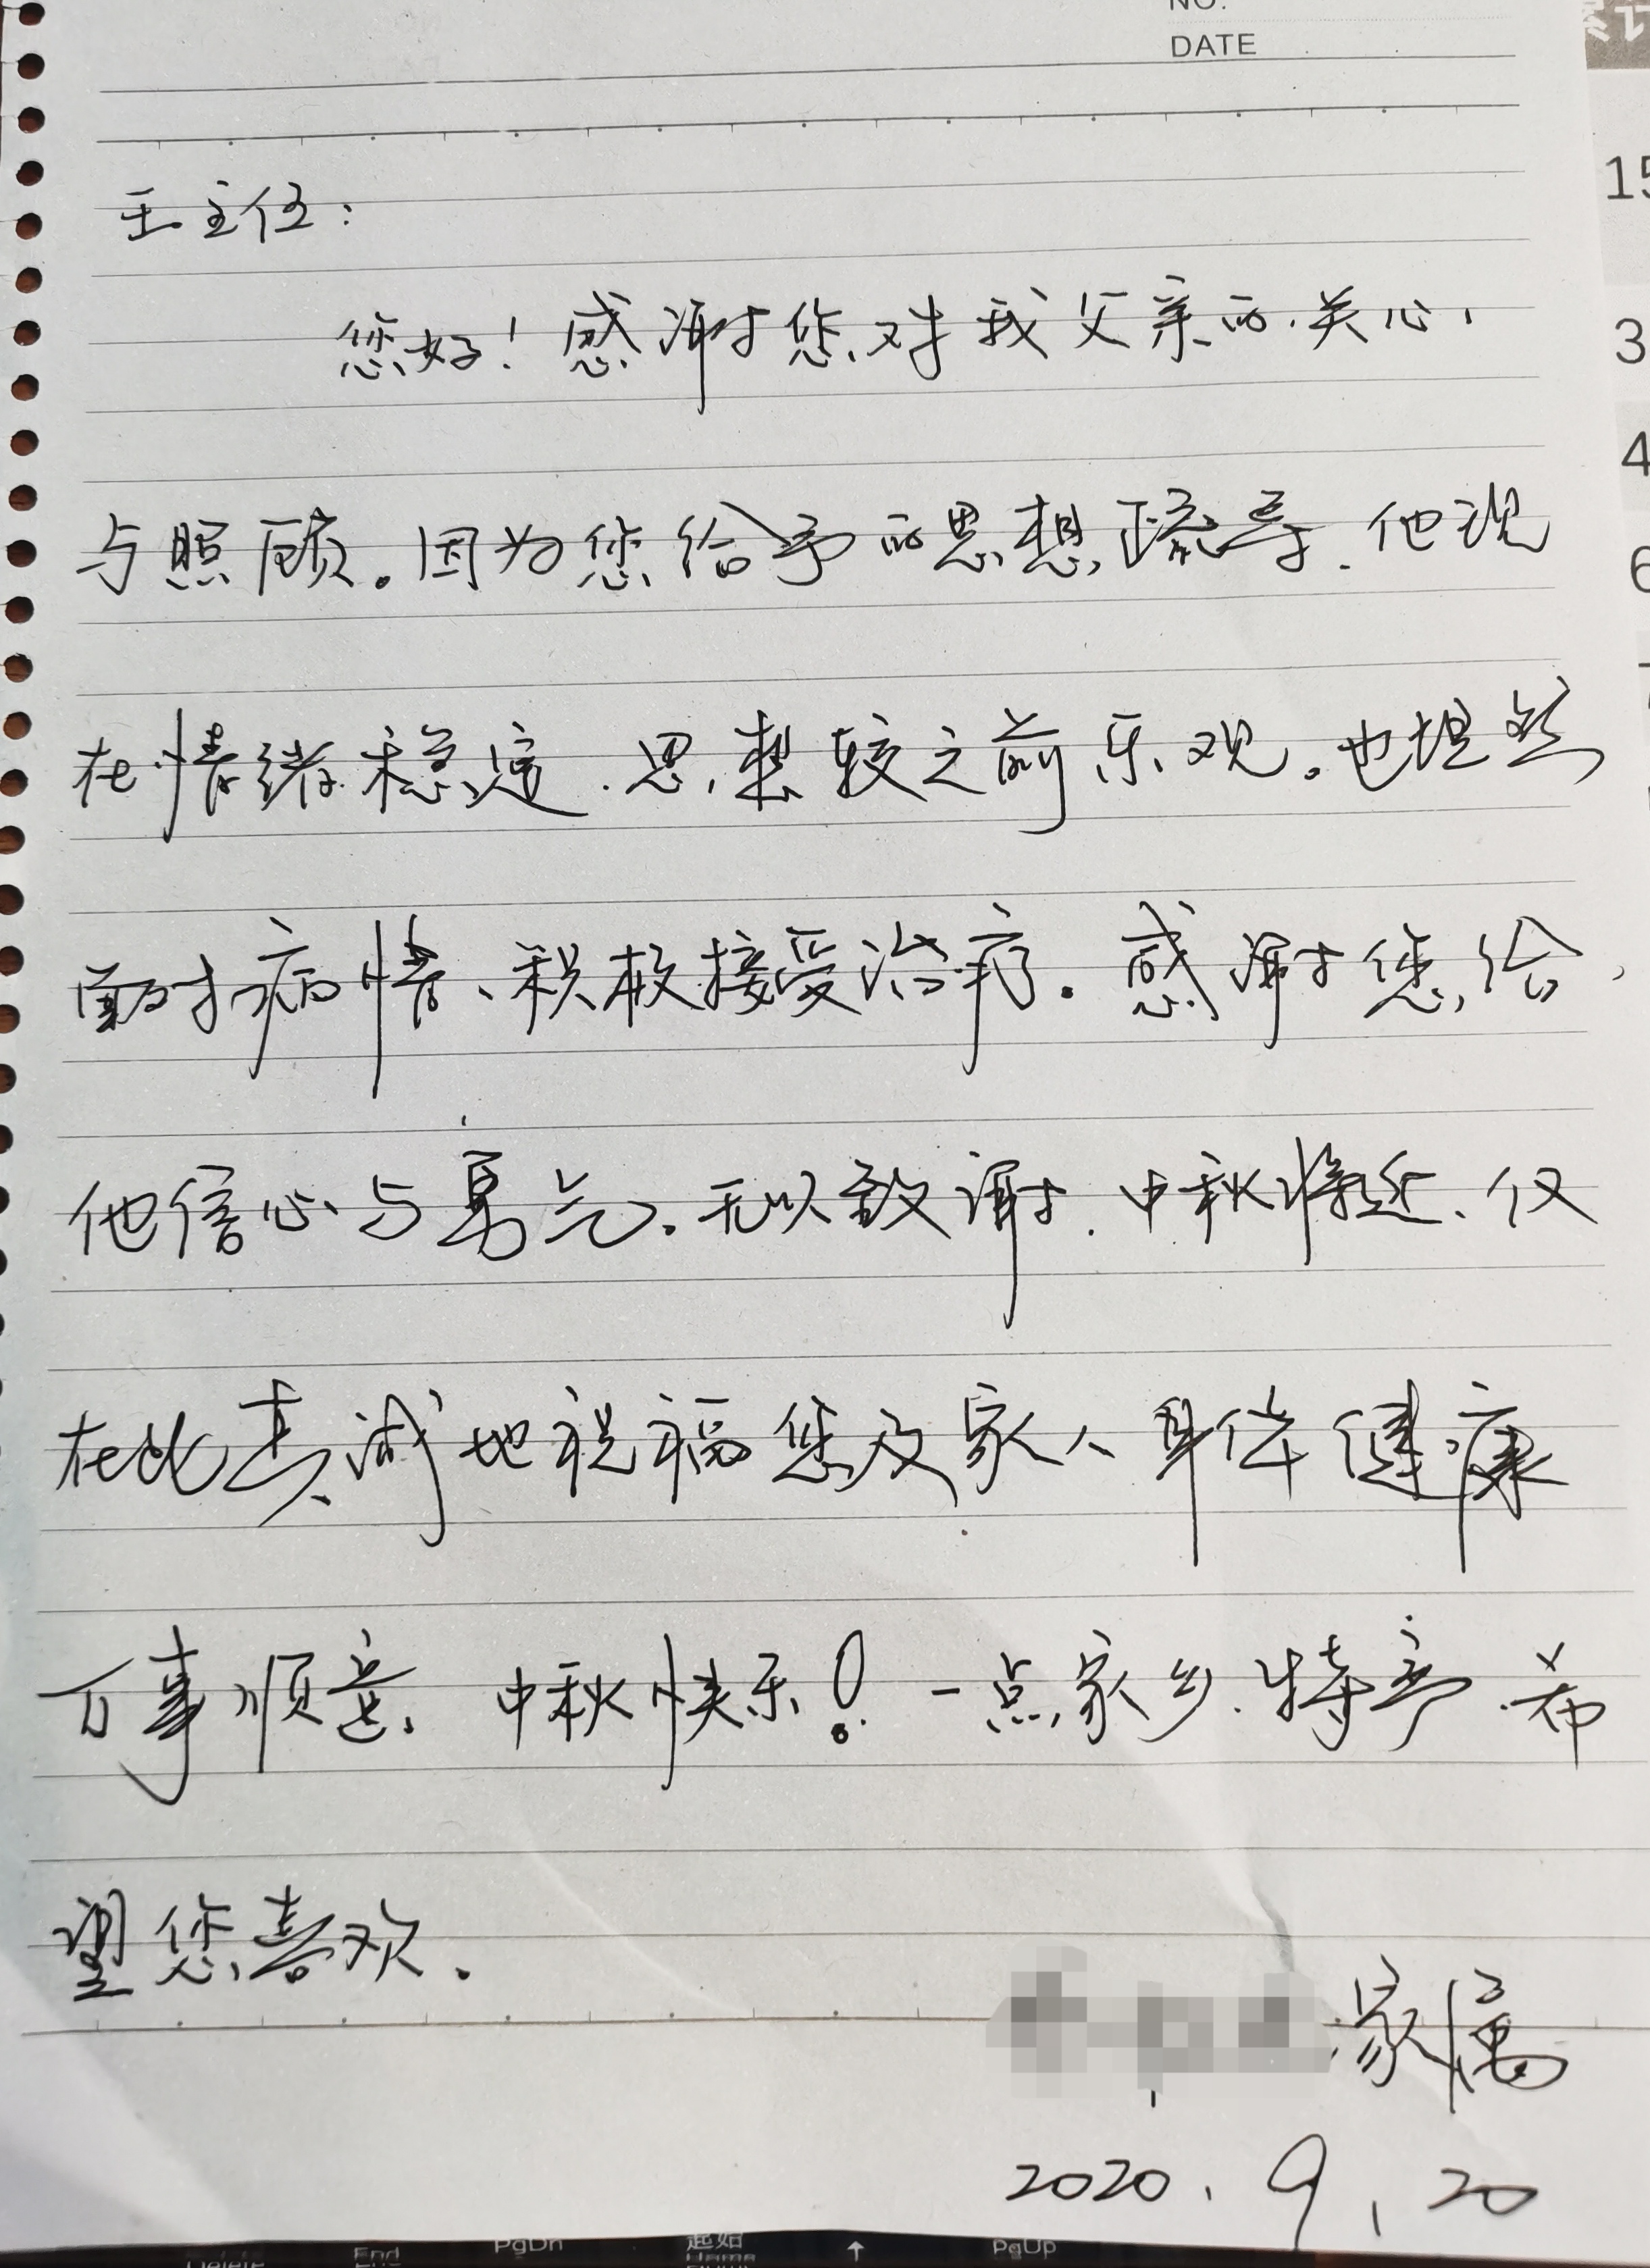 NO.
DATE
王主任：
您好！感谢您对我父亲的关心，
与照顾。因为您给予的思想疏导，他现
在情绪稳定，思想较之前乐观。也坦然
面对病情、积极接受治疗。感谢您给
他信心与勇气。无以致谢，中秋将近、仅
在此真诚地祝福您及家人身体健康
万事顺意、中秋快乐！一点家乡特产希
望您喜欢。
家属
2020.9.20
15
3
4
6
End
PgDn
起始
Home
↑
PgUp